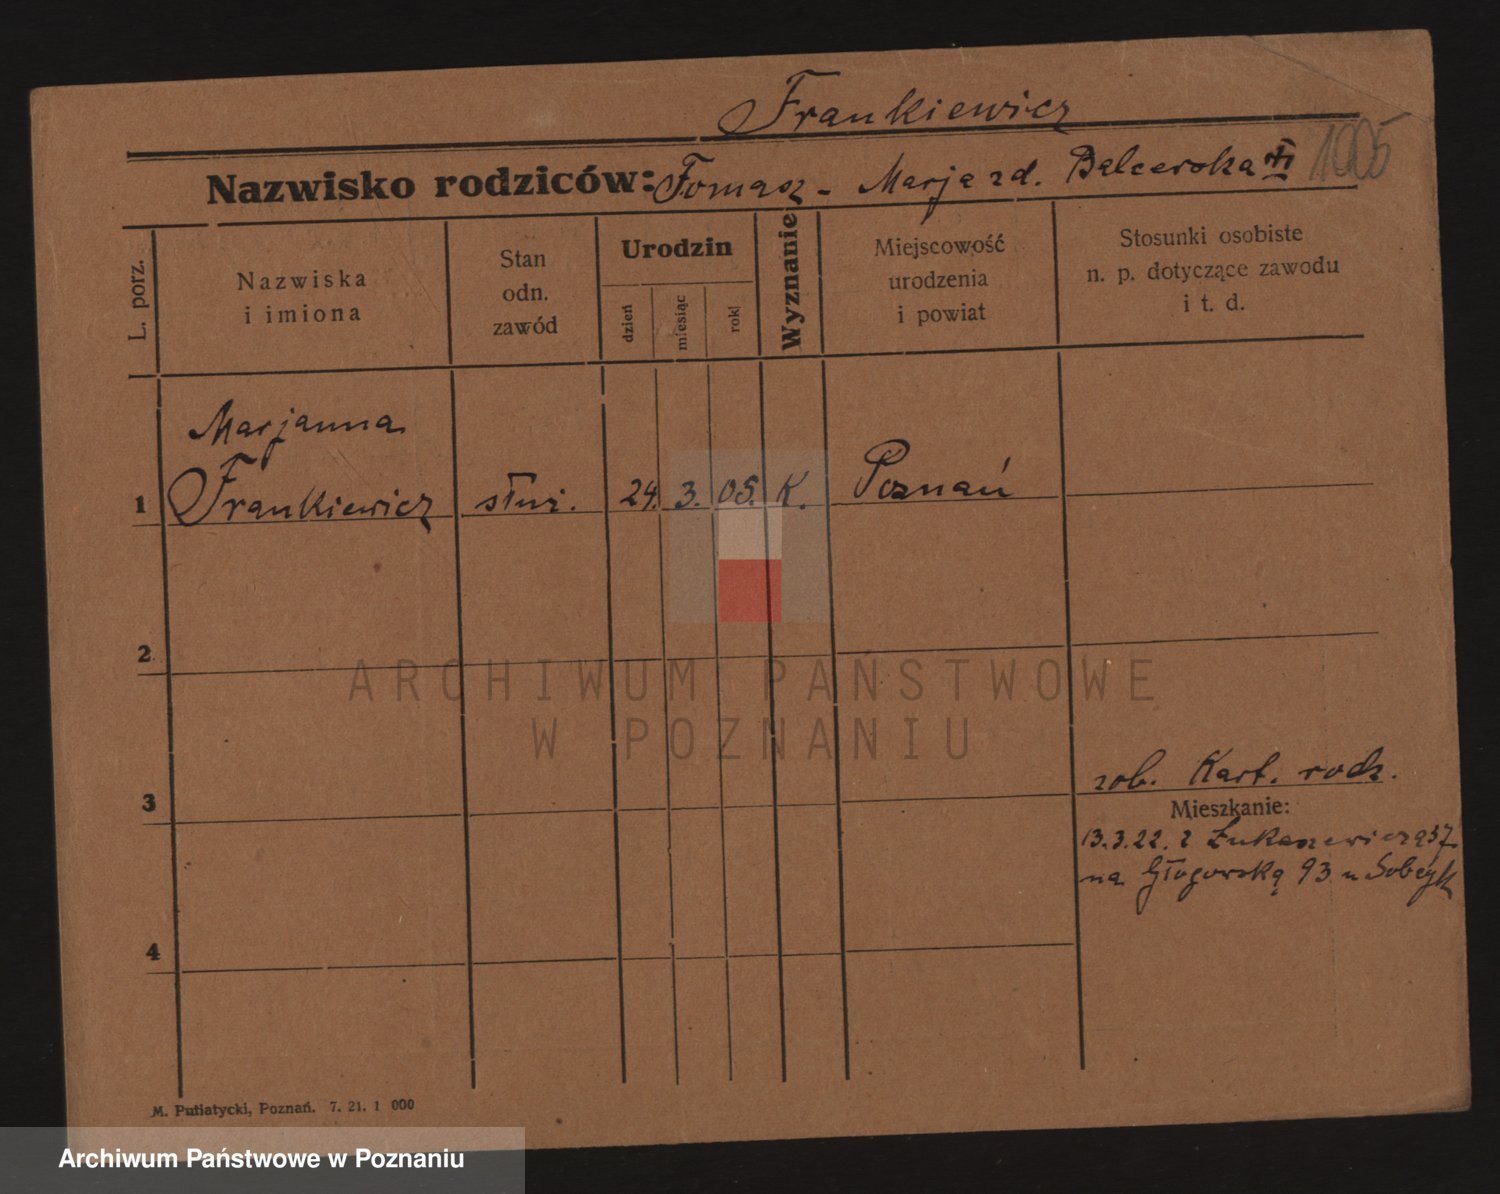 Frankiewicz
Nazwisko rodziców: Tomasz - Marja zd. Balcerska 1005
L. porz.
Nazwiska
i imiona
Stan
odn.
zawód
Urodzin
dzień
miesiąc
rok
Wyznanie
Miejscowość
urodzenia
i powiat
Stosunki osobiste
n. p. dotyczące zawodu
i t. d.
Marjanna
1 Frankiewicz służ. 24. 3. 05. K. Poznań
2
ARCHIWUM PAŃSTWOWE
W POZNANIU
zob. Kart. rodz.
3
Mieszkanie:
13.3.22. z Łukaszewicza 37.
na Głogowską 93 u Sobczyk
4
M. Putiatycki, Poznań. 7. 21. 1 000
Archiwum Państwowe w Poznaniu